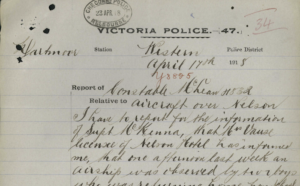 VICTORIA POLICE. 47. 34
Dartmoor Station Western Police District
April 17th 1918
Report of Constable Wright 4882
Relative to Aircraft over Nelson
I have to report for the information
of Supt McKenna, that Mr Vause
licensee of Nelson Hotel has informed
me, that one afternoon last week an
airship was observed by two boys
who was returning home